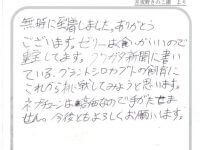 無事に到着しました。ありがとう
ございます。ゼリーは食いがいいので
重宝してます。クワガタ新聞に書い
ている、グラントシロカブトの飼育に
これから挑戦してみようと思います。
ネプチューンは高価なので手がだせま
せん。今後ともよろしくお願います。